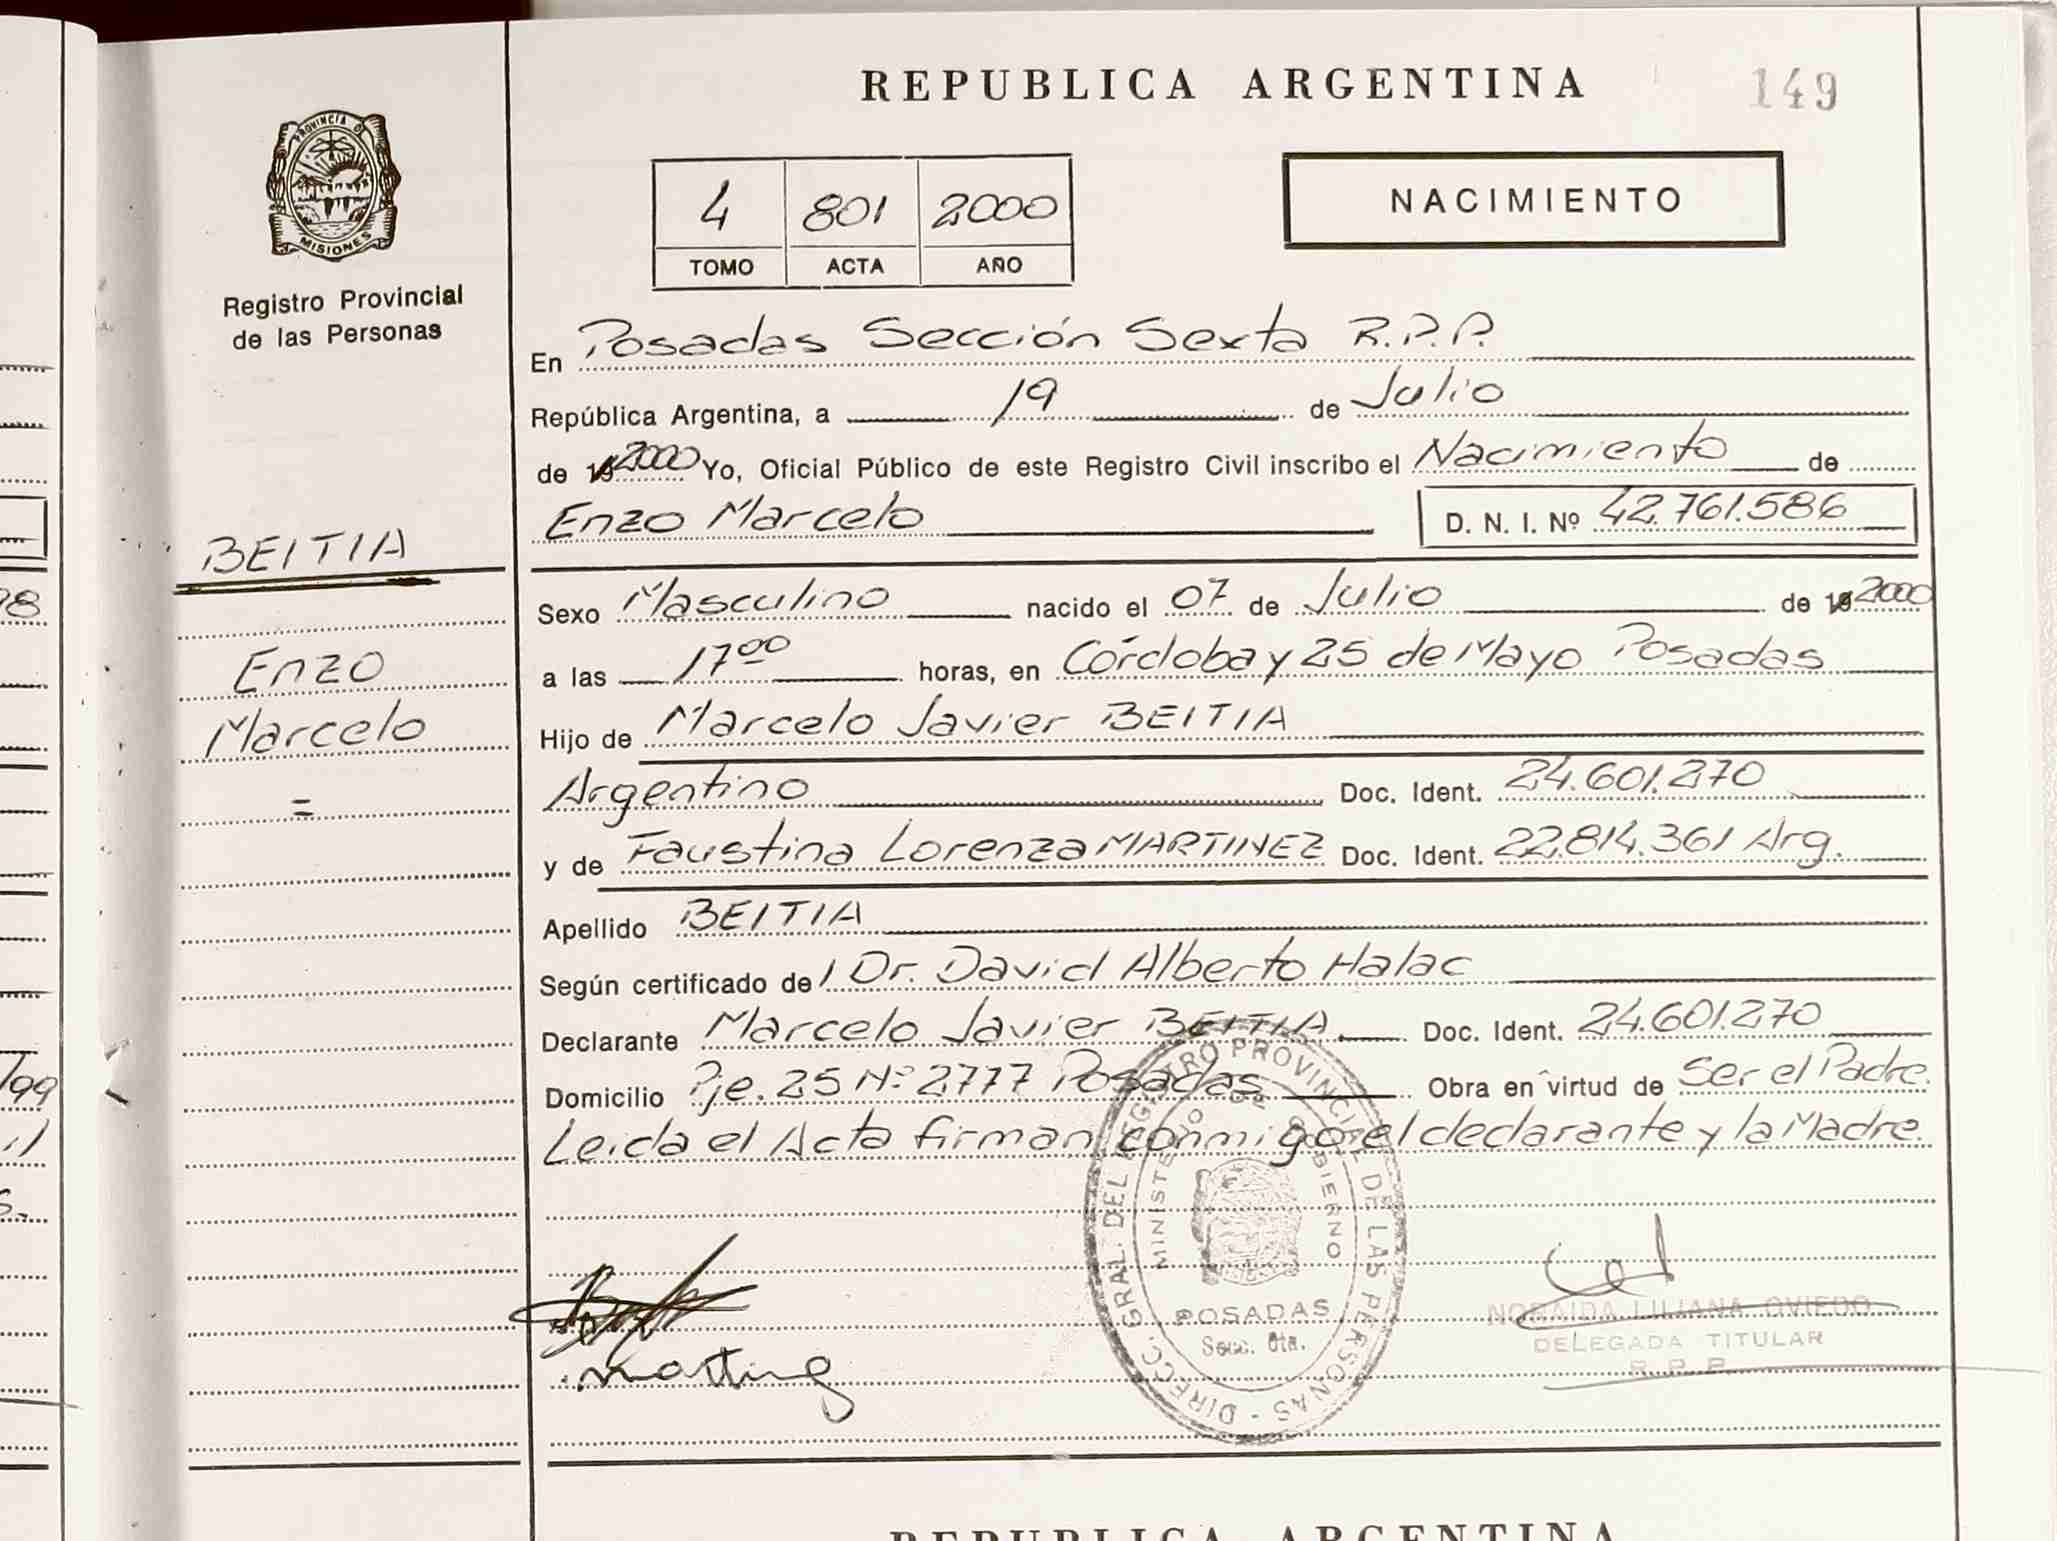 REPUBLICA ARGENTINA
149
PROVINCIA DE
MISIONES
Registro Provincial
de las Personas
4 801 2000
TOMO ACTA AÑO
NACIMIENTO
En Posadas Sección Sexta R.P.P.
República Argentina, a 19 de Julio
de 19 2000 Yo, Oficial Público de este Registro Civil inscribo el Nacimiento de
Enzo Marcelo D. N. I. Nº 42.761.586
BEITIA
Enzo
Marcelo
=
Sexo Masculino nacido el 07 de Julio de 19 2000
a las 17 00 horas, en Córdoba y 25 de Mayo Posadas
Hijo de Marcelo Javier BEITIA
Argentino Doc. Ident. 24.601.270
y de Faustina Lorenza MARTINEZ Doc. Ident. 22.814.361 Arg.
Apellido BEITIA
Según certificado de l Dr. David Alberto Halac
Declarante Marcelo Javier BEITIA Doc. Ident. 24.601.270
Domicilio Pje. 25 Nº 2777 Posadas Obra en virtud de Ser el Padre.
Leida el Acta firman conmigo el declarante y la Madre.
DIRECC. GRAL. DEL REGISTRO PROVINCIAL DE LAS PERSONAS -
MINISTERIO DE GOBIERNO
POSADAS
Secc. 6ta.
NORAIDA LILIANA OVIEDO
DELEGADA TITULAR
R.P.P.
REPUBLICA ARGENTINA